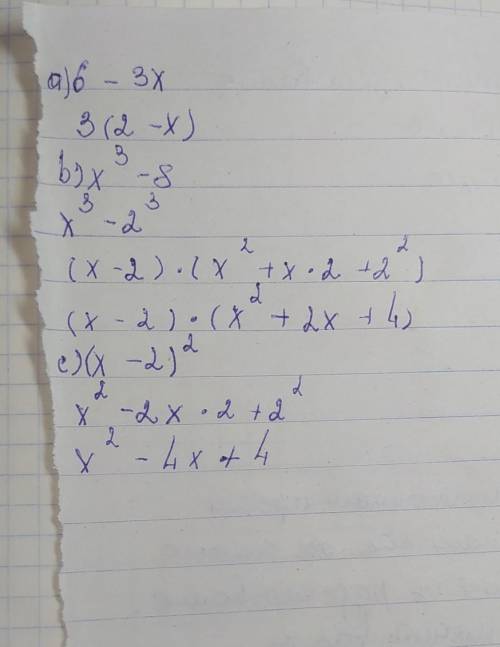 a) 6 - 3x
3(2 - x)
b) x³ - 8
x³ - 2³
(x - 2) · (x² + x · 2 + 2²)
(x - 2) · (x² + 2x + 4)
c) (x - 2)²
x² - 2x · 2 + 2²
x² - 4x + 4